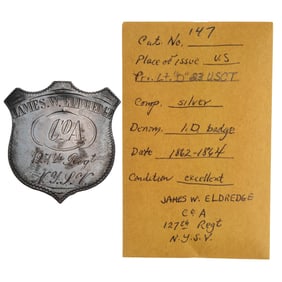 JAMES. W. ELDREDGE
Co A
127th Regt
N.Y.S.V.
Cat. No. 147
Place of issue US
Pvt. Lt. "D" 23 USCT
Comp. silver
Denom. I.D. badge
Date 1862-1864
Condition excellent
JAMES W. ELDREDGE
Co A
127th Regt
N.Y.S.V.